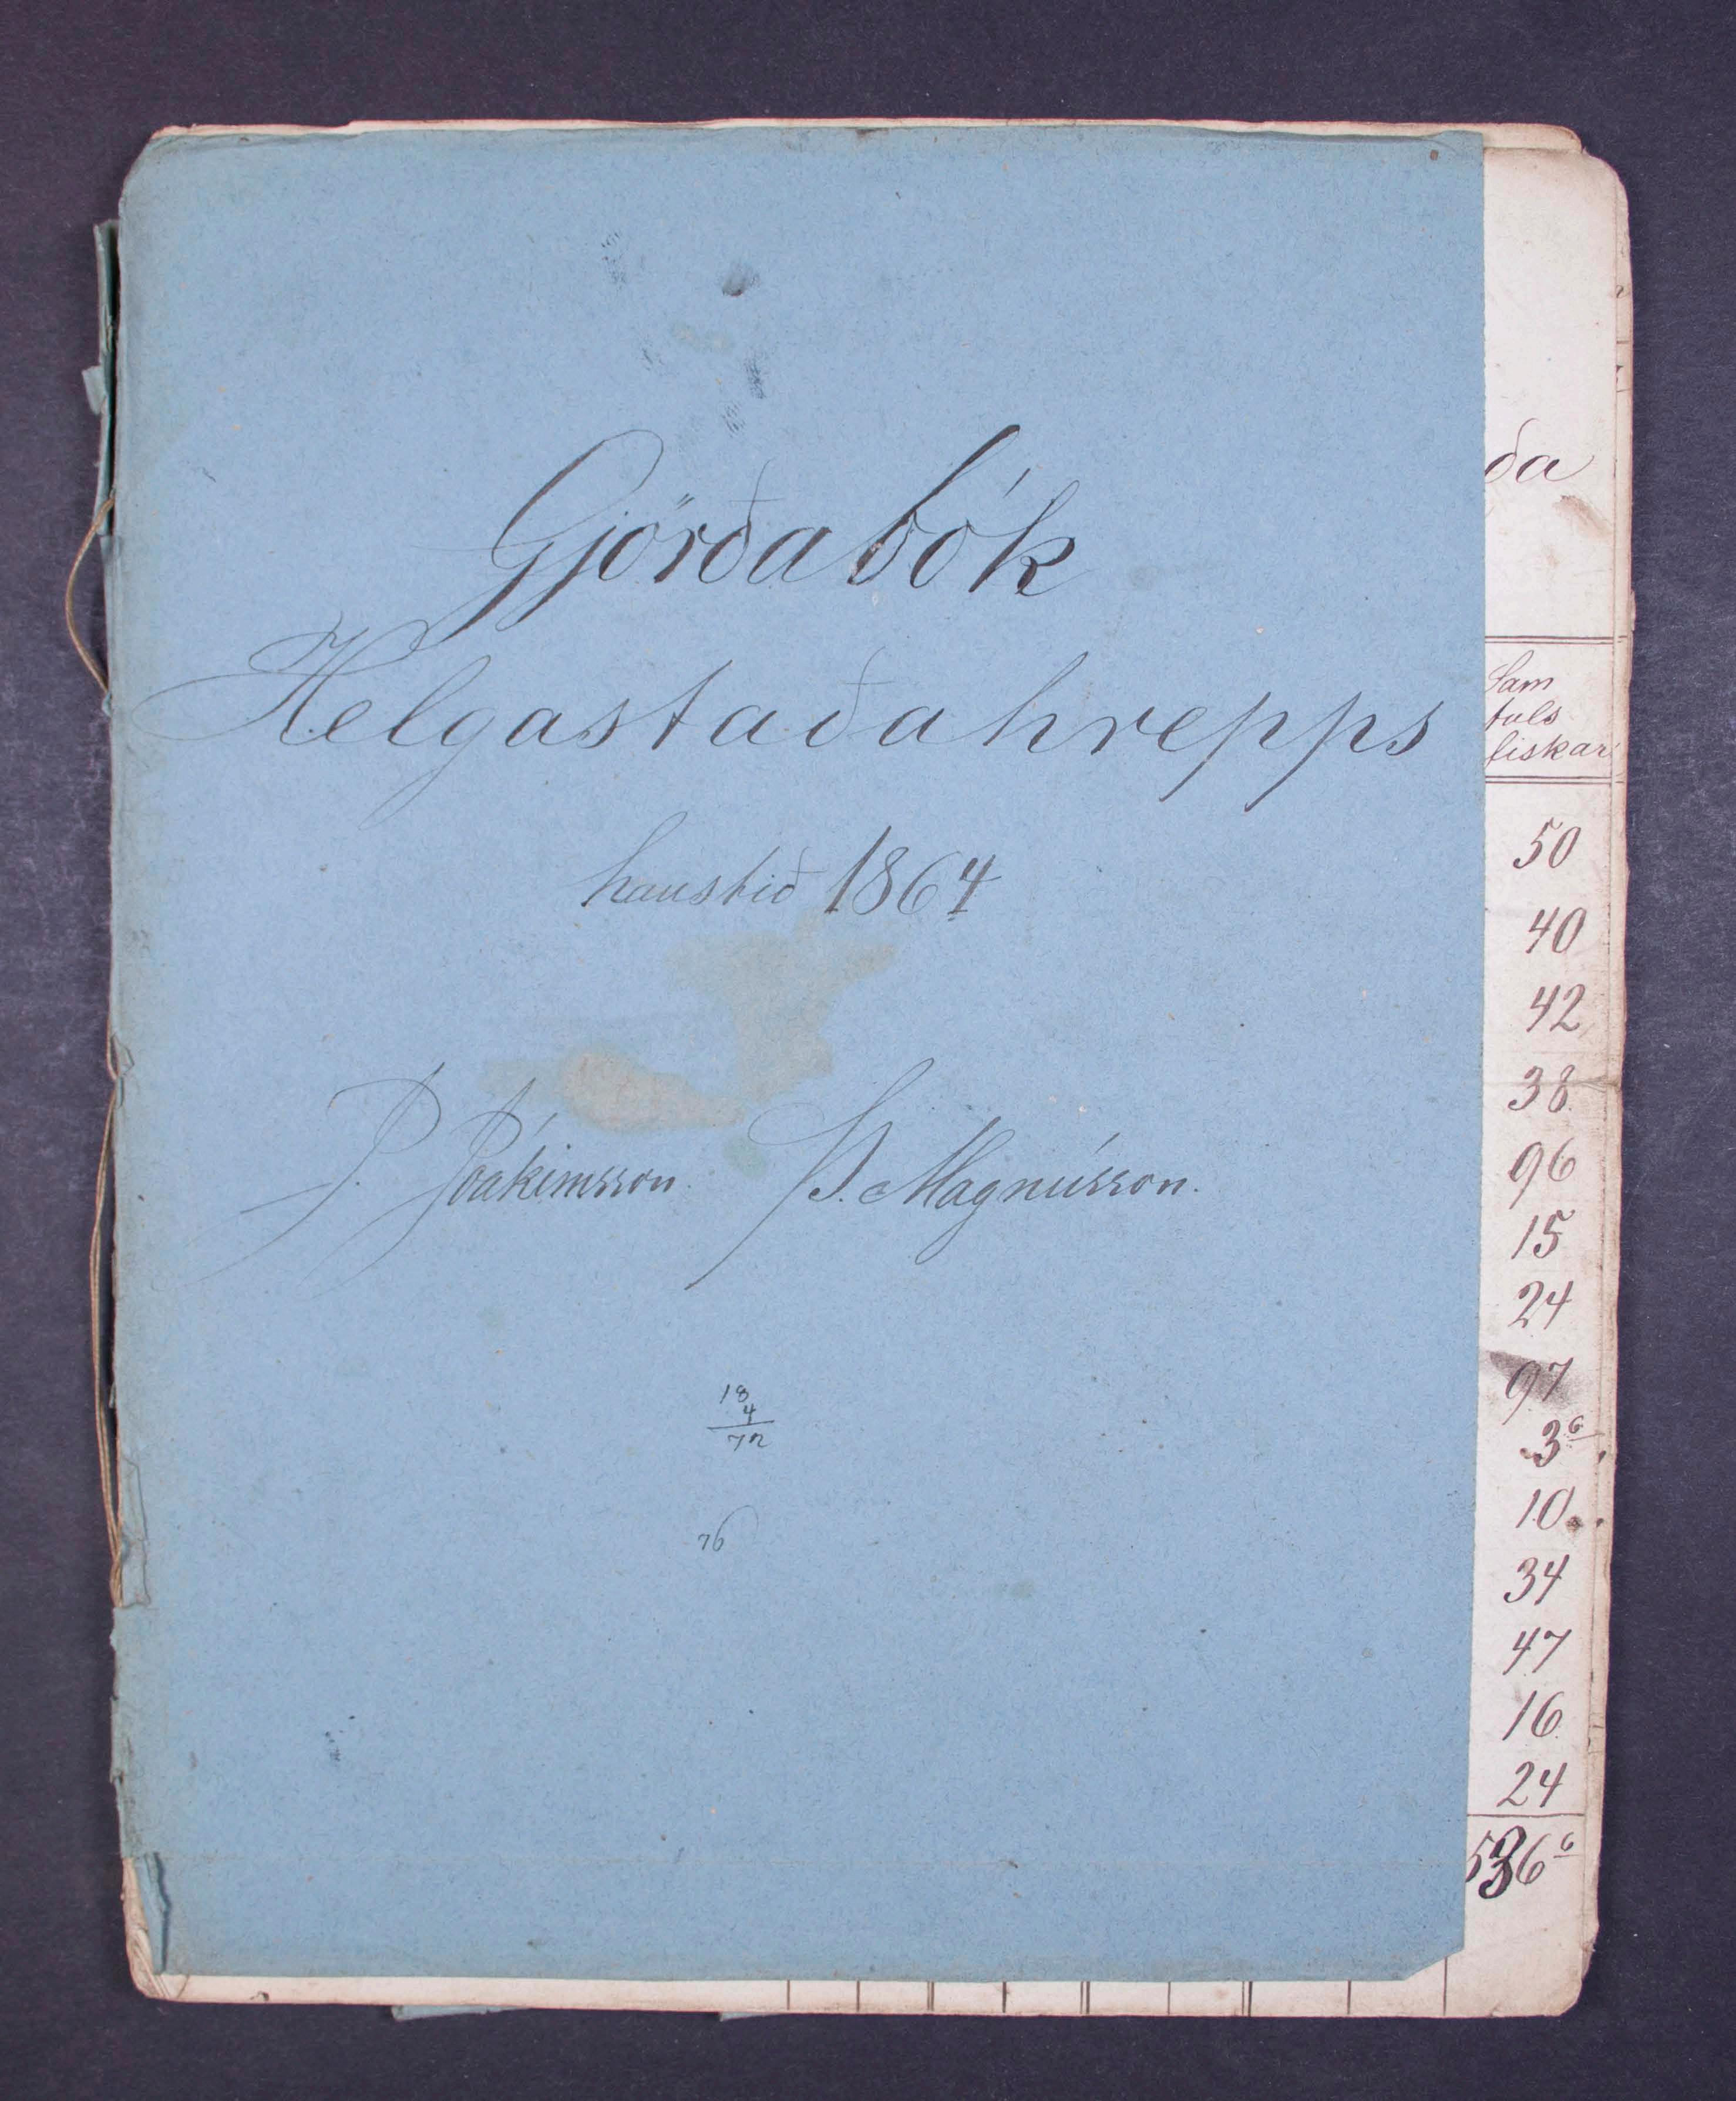 Gjörðabók
Helgastaðahrepps
haustið 1864
J. Jóakimsson. S. Magnússon.
18
4
72
76
ða
Sam
tals
fiskar
50
40
42
38
96
15
24
97
3 6
10
34
47
16
24
536 6